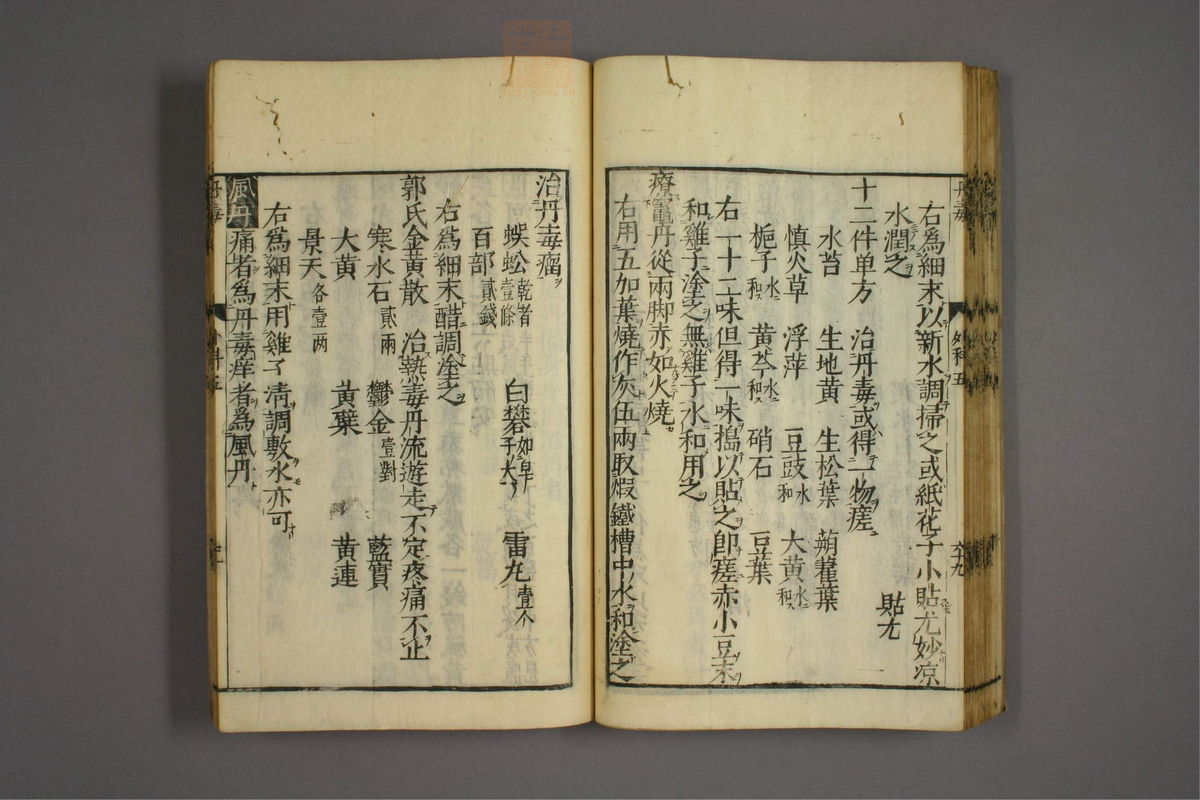 右爲細末以新水調掃之或紙花子小貼尤妙凉
水潤之
貼尤
十二件单方 治丹毒或得一物瘥
水苔 生地黄 生松葉 蒴藋葉
慎火草 浮萍 豆豉水和 大黄水和ス
梔子水和ス 黄芩水和ス 硝石 豆葉
右一十二味但得一味搗以貼之卽瘥赤小豆末
和雞子塗之無雞子水和用之
療竈丹從兩脚赤如火燒
右用五加葉燒作灰伍兩取煆鐵槽中水和塗之
外科五
治丹毒瘤
蜈蚣乾者壹條 白礬如皁子大 雷丸壹个
百部貳錢
右爲細末醋調塗之
郭氏金黄散 治熱毒丹流遊走不定疼痛不止
寒水石貳兩 鬱金壹對 藍實
大黄 黄蘗 黄連
景天各壹两
右爲細末用雞子淸調敷水亦可
風丹痛者爲丹毒痒者爲風丹
丹毒